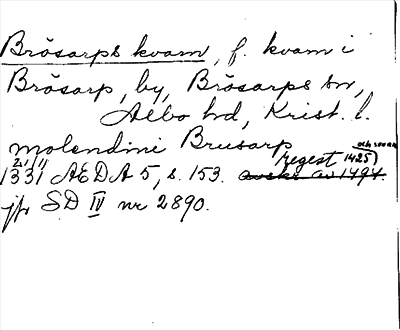 Brösarps kvarn, f. kvarn i
Brösarp, by, Brösarps sn,
Albo hd, Krist. l.
molendini Brusarp
1331 21/11 AEDA 5, s. 153. regest 1425) avskr av 1494.
jfr SD IV nr 2890.